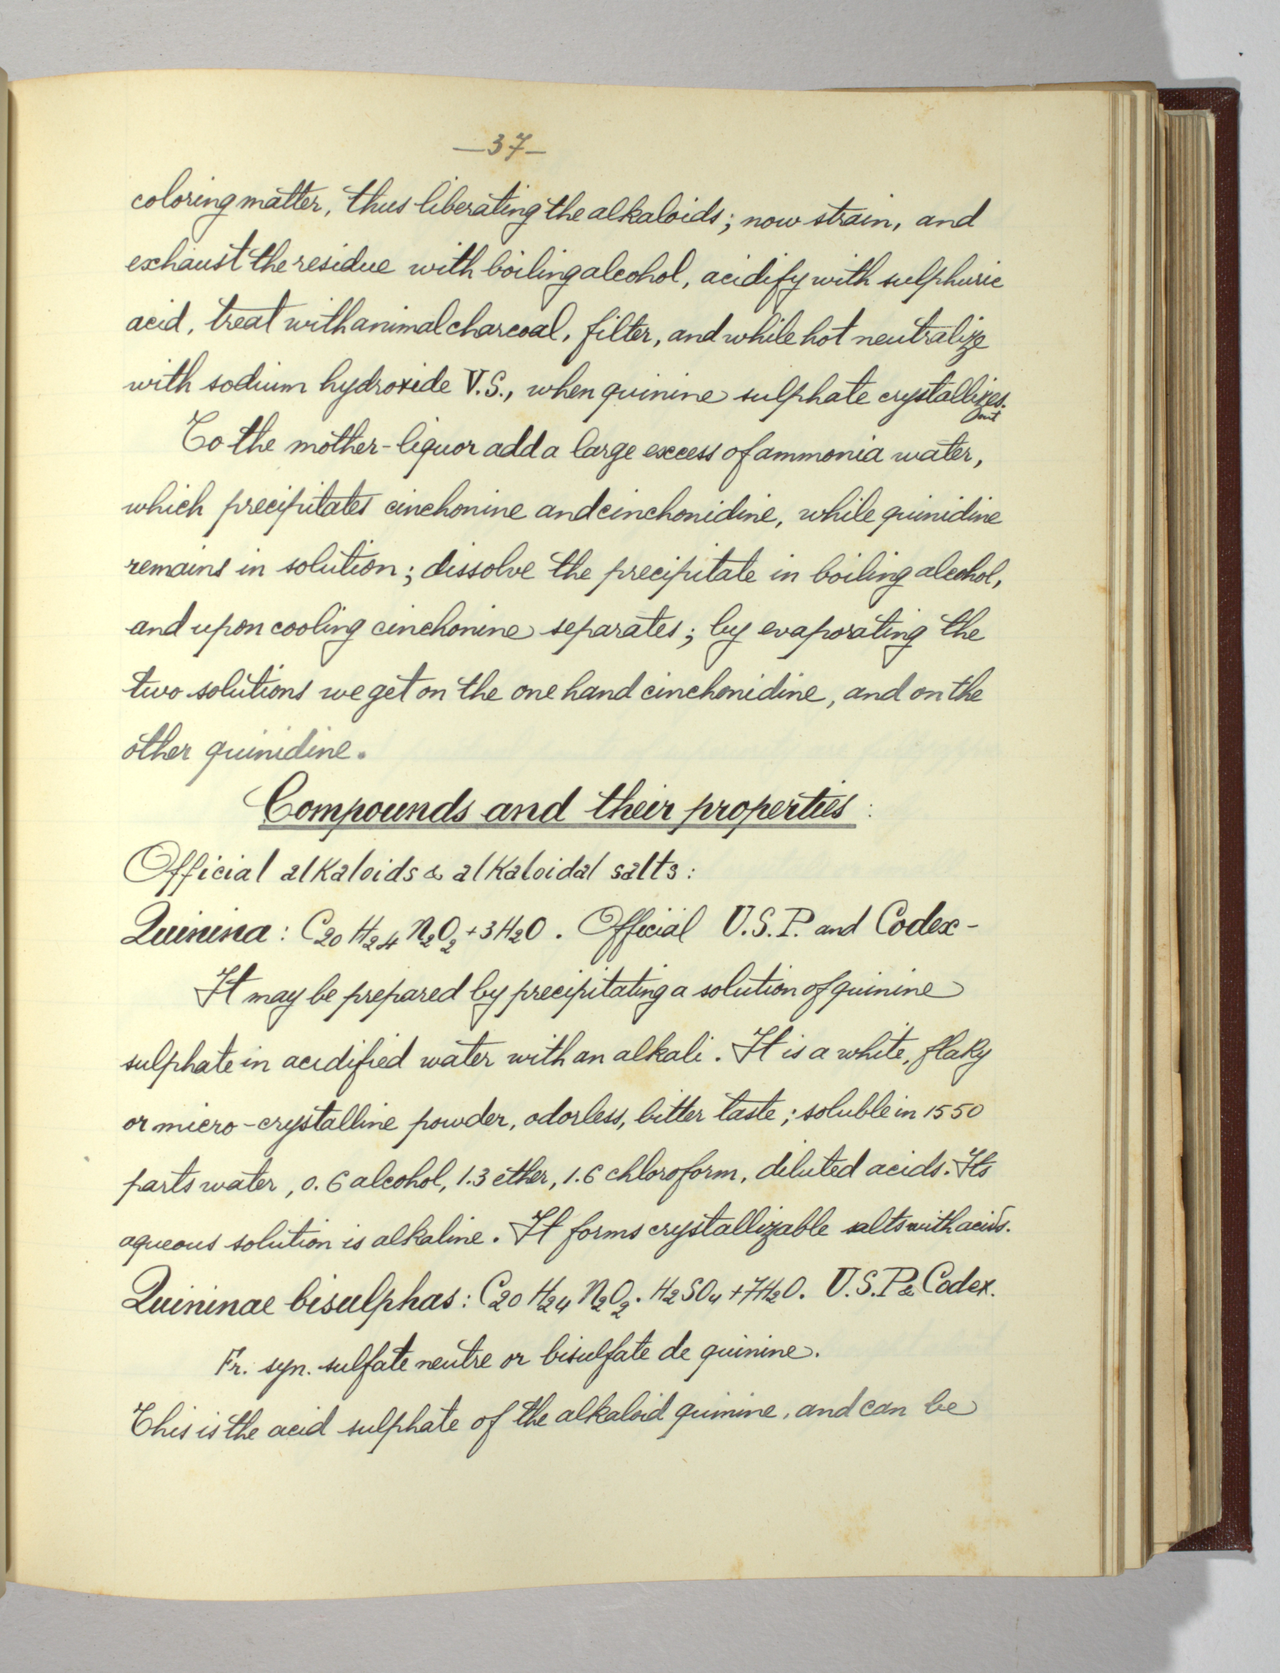 —37—
coloring matter, thus liberating the alkaloids; now strain, and
exhaust the residue with boiling alcohol, acidify with sulphuric
acid, treat with animal charcoal, filter, and while hot neutralize
with sodium hydroxide V.S., when quinine sulphate crystallizes.
out
To the mother-liquor add a large excess of ammonia water,
which precipitates cinchonine and cinchonidine, while quinidine
remains in solution; dissolve the precipitate in boiling alcohol,
and upon cooling cinchonine separates; by evaporating the
two solutions we get on the one hand cinchonidine, and on the
other quinidine.
Compounds and their properties:
Official alkaloids & alkaloidal salts:
Quinina: C₂₀H₂₄N₂O₂+3H₂O. Official U.S.P. and Codex-
It may be prepared by precipitating a solution of quinine
sulphate in acidified water with an alkali. It is a white, flaky
or micro-crystalline powder, odorless, bitter taste; soluble in 1550
parts water, 0.6 alcohol, 1.3 ether, 1.6 chloroform, diluted acids. Its
aqueous solution is alkaline. It forms crystallizable salts with acids.
Quininae bisulphas: C₂₀H₂₄N₂O₂.H₂SO₄+7H₂O. U.S.P & Codex.
Fr. syn. sulfate neutre or bisulfate de quinine.
This is the acid sulphate of the alkaloid quinine, and can be